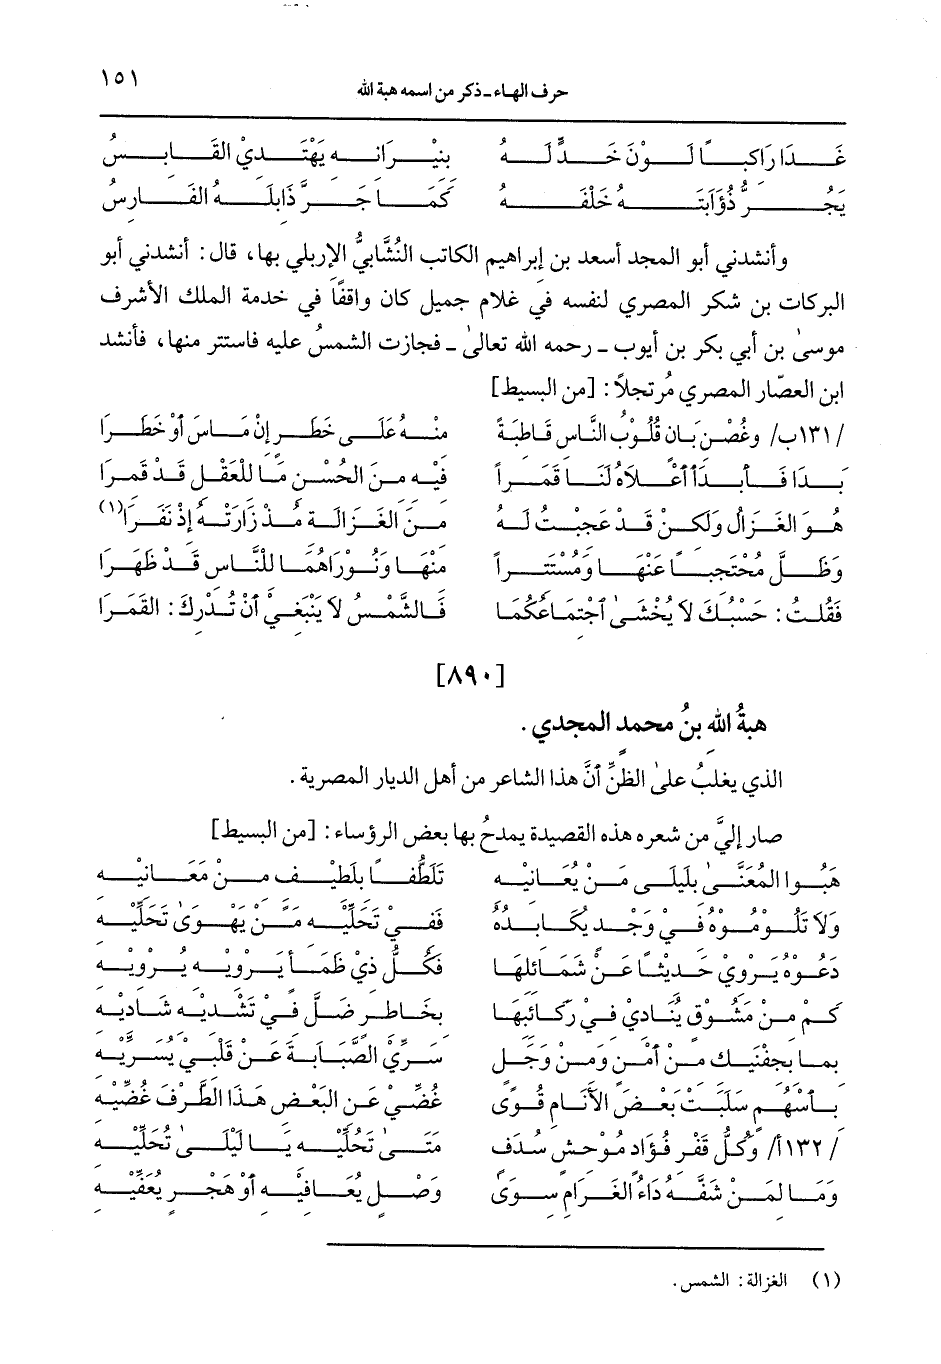 حرف الهاء ـ ذكر من اسمه هبة الله ١٥١
غَدَا رَاكِبًا لَوْنَ خَدٍّ لَهُ بِنِيْرَانِهِ يَهْتَدِيْ القَابِسُ
يَجُرُّ ذُؤَابَتَهُ خَلْفَهُ كَمَا جَرَّ ذَابِلَهُ الفَارِسُ
وأنشدني أبو المجد أسعد بن إبراهيم الكاتب النُشَّابيُّ الإربلي بها، قال: أنشدني أبو
البركات بن شكر المصري لنفسه في غلام جميل كان واقفًا في خدمة الملك الأشرف
موسىٰ بن أبي بكر بن أيوب ـ رحمه الله تعالىٰ ـ فجازت الشمسُ عليه فاستتر منها، فأنشد
ابن العصّار المصري مُرتجلاً: [من البسيط]
/١٣١ب/ وغُصْنِ بَانٍ قُلُوْبُ النَّاسِ قَاطِبَةً مِنْهُ عَلَى خَطَرٍ إِنْ مَاسَ أَوْ خَطَرَا
بَدَا فَأَبْدَأَ أَعْلَاهُ لَنَا قَمَراً فِيْهِ مِنَ الحُسْنِ مَا لِلْعَقْلِ قَدْ قَمَرَا
هُوَ الغَزَالُ وَلَكِنْ قَدْ عَجِبْتُ لَهُ مِنَ الغَزَالَةِ مُذْ زَارَتْهُ إِذْ نَفَرَا(١)
وَظَلَّ مُحْتَجِبًا عَنْهَا وَمُسْتَتِراً مِنْهَا وَنُوْرَاهُمَا لِلنَّاسِ قَدْ ظَهَرَا
فَقُلتُ: حَسْبُكَ لاَ يُخْشَىٰ اجْتِمَاعُكُمَا فَالشَّمْسُ لاَ يَنْبَغِيْ أَنْ تُدْرِكَ: القَمَرَا
[٨٩٠]
هبةُ الله بنُ محمد المجدي.
الذي يغلبُ علىٰ الظنِّ أنَّ هذا الشاعر من أهل الديار المصرية.
صار إليَّ من شعره هذه القصيدة يمدحُ بها بعض الرؤساء: [من البسيط]
هَبُوا المُعَنَّىٰ بِلَيْلَى مَنْ يُعَانِيْهِ تَلَطُّفًا بِلَطِيْفٍ مِنْ مَعَانِيْهِ
وَلاَ تَلُوْمُوْهُ فِي وَجْدٍ يُكَابِدُهُ فَفِيْ تَجَلِّيْهِ مَنْ يَهْوَىٰ تَجَلِّيْهِ
دَعُوْهُ يَرْوِيْ حَدِيْثًا عَنْ شَمَائِلِهَا فَكُلُّ ذِيْ ظَمَأٍ يَرْوِيْهِ يُرْوِيْهِ
كَمْ مِنْ مَشُوْقٍ يُنَادِيْ فِي رَكَائِبِهَا بِخَاطِرٍ ضَلَّ فِيْ تَشْدِيْهِ شَادِيْهِ
بِمَا بِجَفْنَيْكِ مِنْ أَمْنٍ وَمِنْ وَجَلٍ سَرِّيْ الصَّبَابَةَ عَنْ قَلْبِيْ بِسَرِّيْهِ
بِأَسْهُمٍ سَلَبَتْ بَعْضَ الأَنَامِ قُوًى غُضِّيْ عَنِ البَعْضِ هَذَا الطَّرْفَ غُضِّيْهِ
/١٣٢أ/ وَكُلُّ قَفْرِ فُؤَادٍ مُوْحِشٍ سُدَفٍ مَتَىٰ تَحُلِّيْهِ يَا لَيْلَىٰ تُحَلِّيْهِ
وَمَا لِمَنْ شَفَّهُ دَاءُ الغَرَامِ سِوَى وَصْلٍ يُعَافِيْهِ أَوْ هَجْرٍ يُعَفِّيْهِ
(١) الغزالة: الشمس.